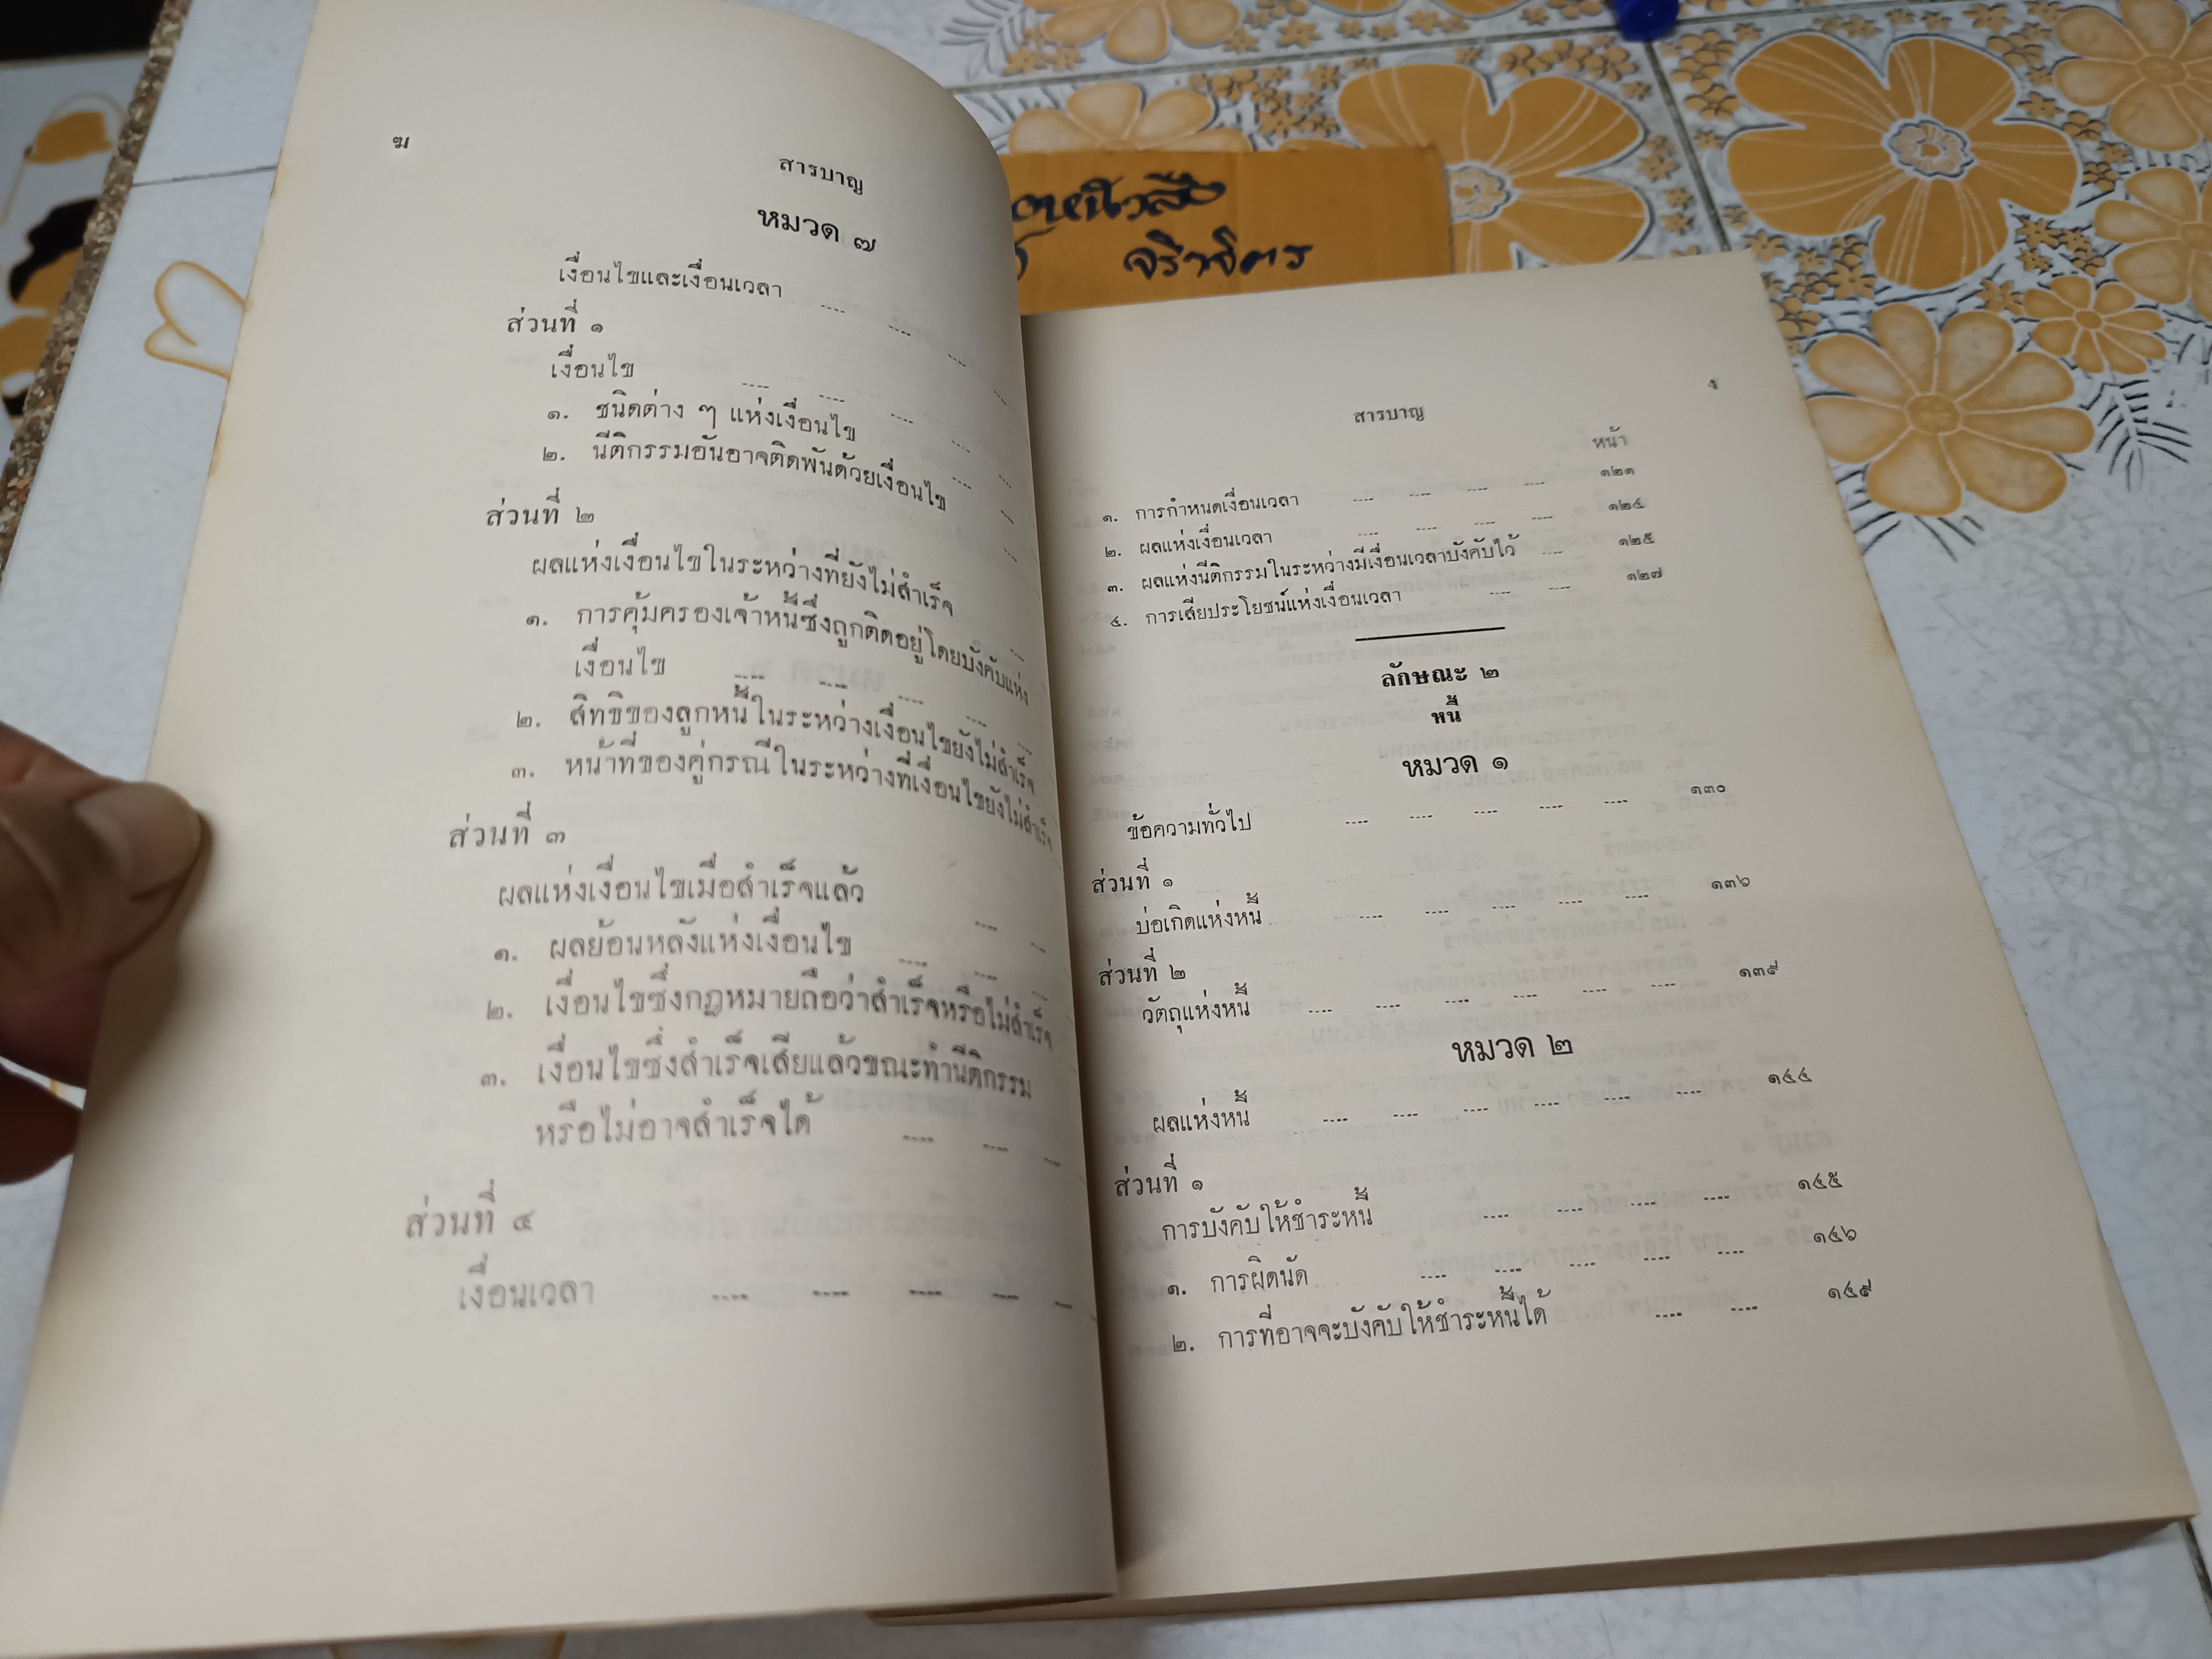 ฆ
สารบาญ
หมวด ๗
เงื่อนไขและเงื่อนเวลา .... .... .... ....
ส่วนที่ ๑
เงื่อนไข .... .... .... ....
๑. ชนิดต่าง ๆ แห่งเงื่อนไข .... ....
๒. นีติกรรมอันอาจติดพันด้วยเงื่อนไข ....
ส่วนที่ ๒
ผลแห่งเงื่อนไขในระหว่างที่ยังไม่สำเร็จ ....
๑. การคุ้มครองเจ้าหนี้ซึ่งถูกติดอยู่โดยบังคับแห่ง
เงื่อนไข .... .... .... .... ....
๒. สิทธิของลูกหนี้ในระหว่างเงื่อนไขยังไม่สำเร็จ
๓. หน้าที่ของคู่กรณีในระหว่างที่เงื่อนไขยังไม่สำเร็จ
ส่วนที่ ๓
ผลแห่งเงื่อนไขเมื่อสำเร็จแล้ว .... ....
๑. ผลย้อนหลังแห่งเงื่อนไข .... .... ....
๒. เงื่อนไขซึ่งกฎหมายถือว่าสำเร็จหรือไม่สำเร็จ
๓. เงื่อนไขซึ่งสำเร็จเสียแล้วขณะทำนีติกรรม
หรือไม่อาจสำเร็จได้ .... .... ....
ส่วนที่ ๔
เงื่อนเวลา .... .... .... .... ....
สารบาญ ง
หน้า
๑. การกำหนดเงื่อนเวลา .... .... .... .... ๑๒๑
๒. ผลแห่งเงื่อนเวลา .... .... .... .... ๑๒๔
๓. ผลแห่งนีติกรรมในระหว่างมีเงื่อนเวลาบังคับไว้ .... ๑๒๕
๔. การเสียประโยชน์แห่งเงื่อนเวลา .... .... ๑๒๗
ลักษณะ ๒
หนี้
หมวด ๑
ข้อความทั่วไป .... .... .... .... .... ๑๓๐
ส่วนที่ ๑
บ่อเกิดแห่งหนี้ .... .... .... .... .... ๑๓๖
ส่วนที่ ๒
วัตถุแห่งหนี้ .... .... .... .... .... .... ๑๓๙
หมวด ๒
ผลแห่งหนี้ .... .... .... .... .... .... ๑๔๔
ส่วนที่ ๑
การบังคับให้ชำระหนี้ .... .... .... .... ๑๔๕
๑. การผิดนัด .... .... .... .... .... ๑๔๖
๒. การที่อาจจะบังคับให้ชำระหนี้ได้ .... .... ๑๔๙